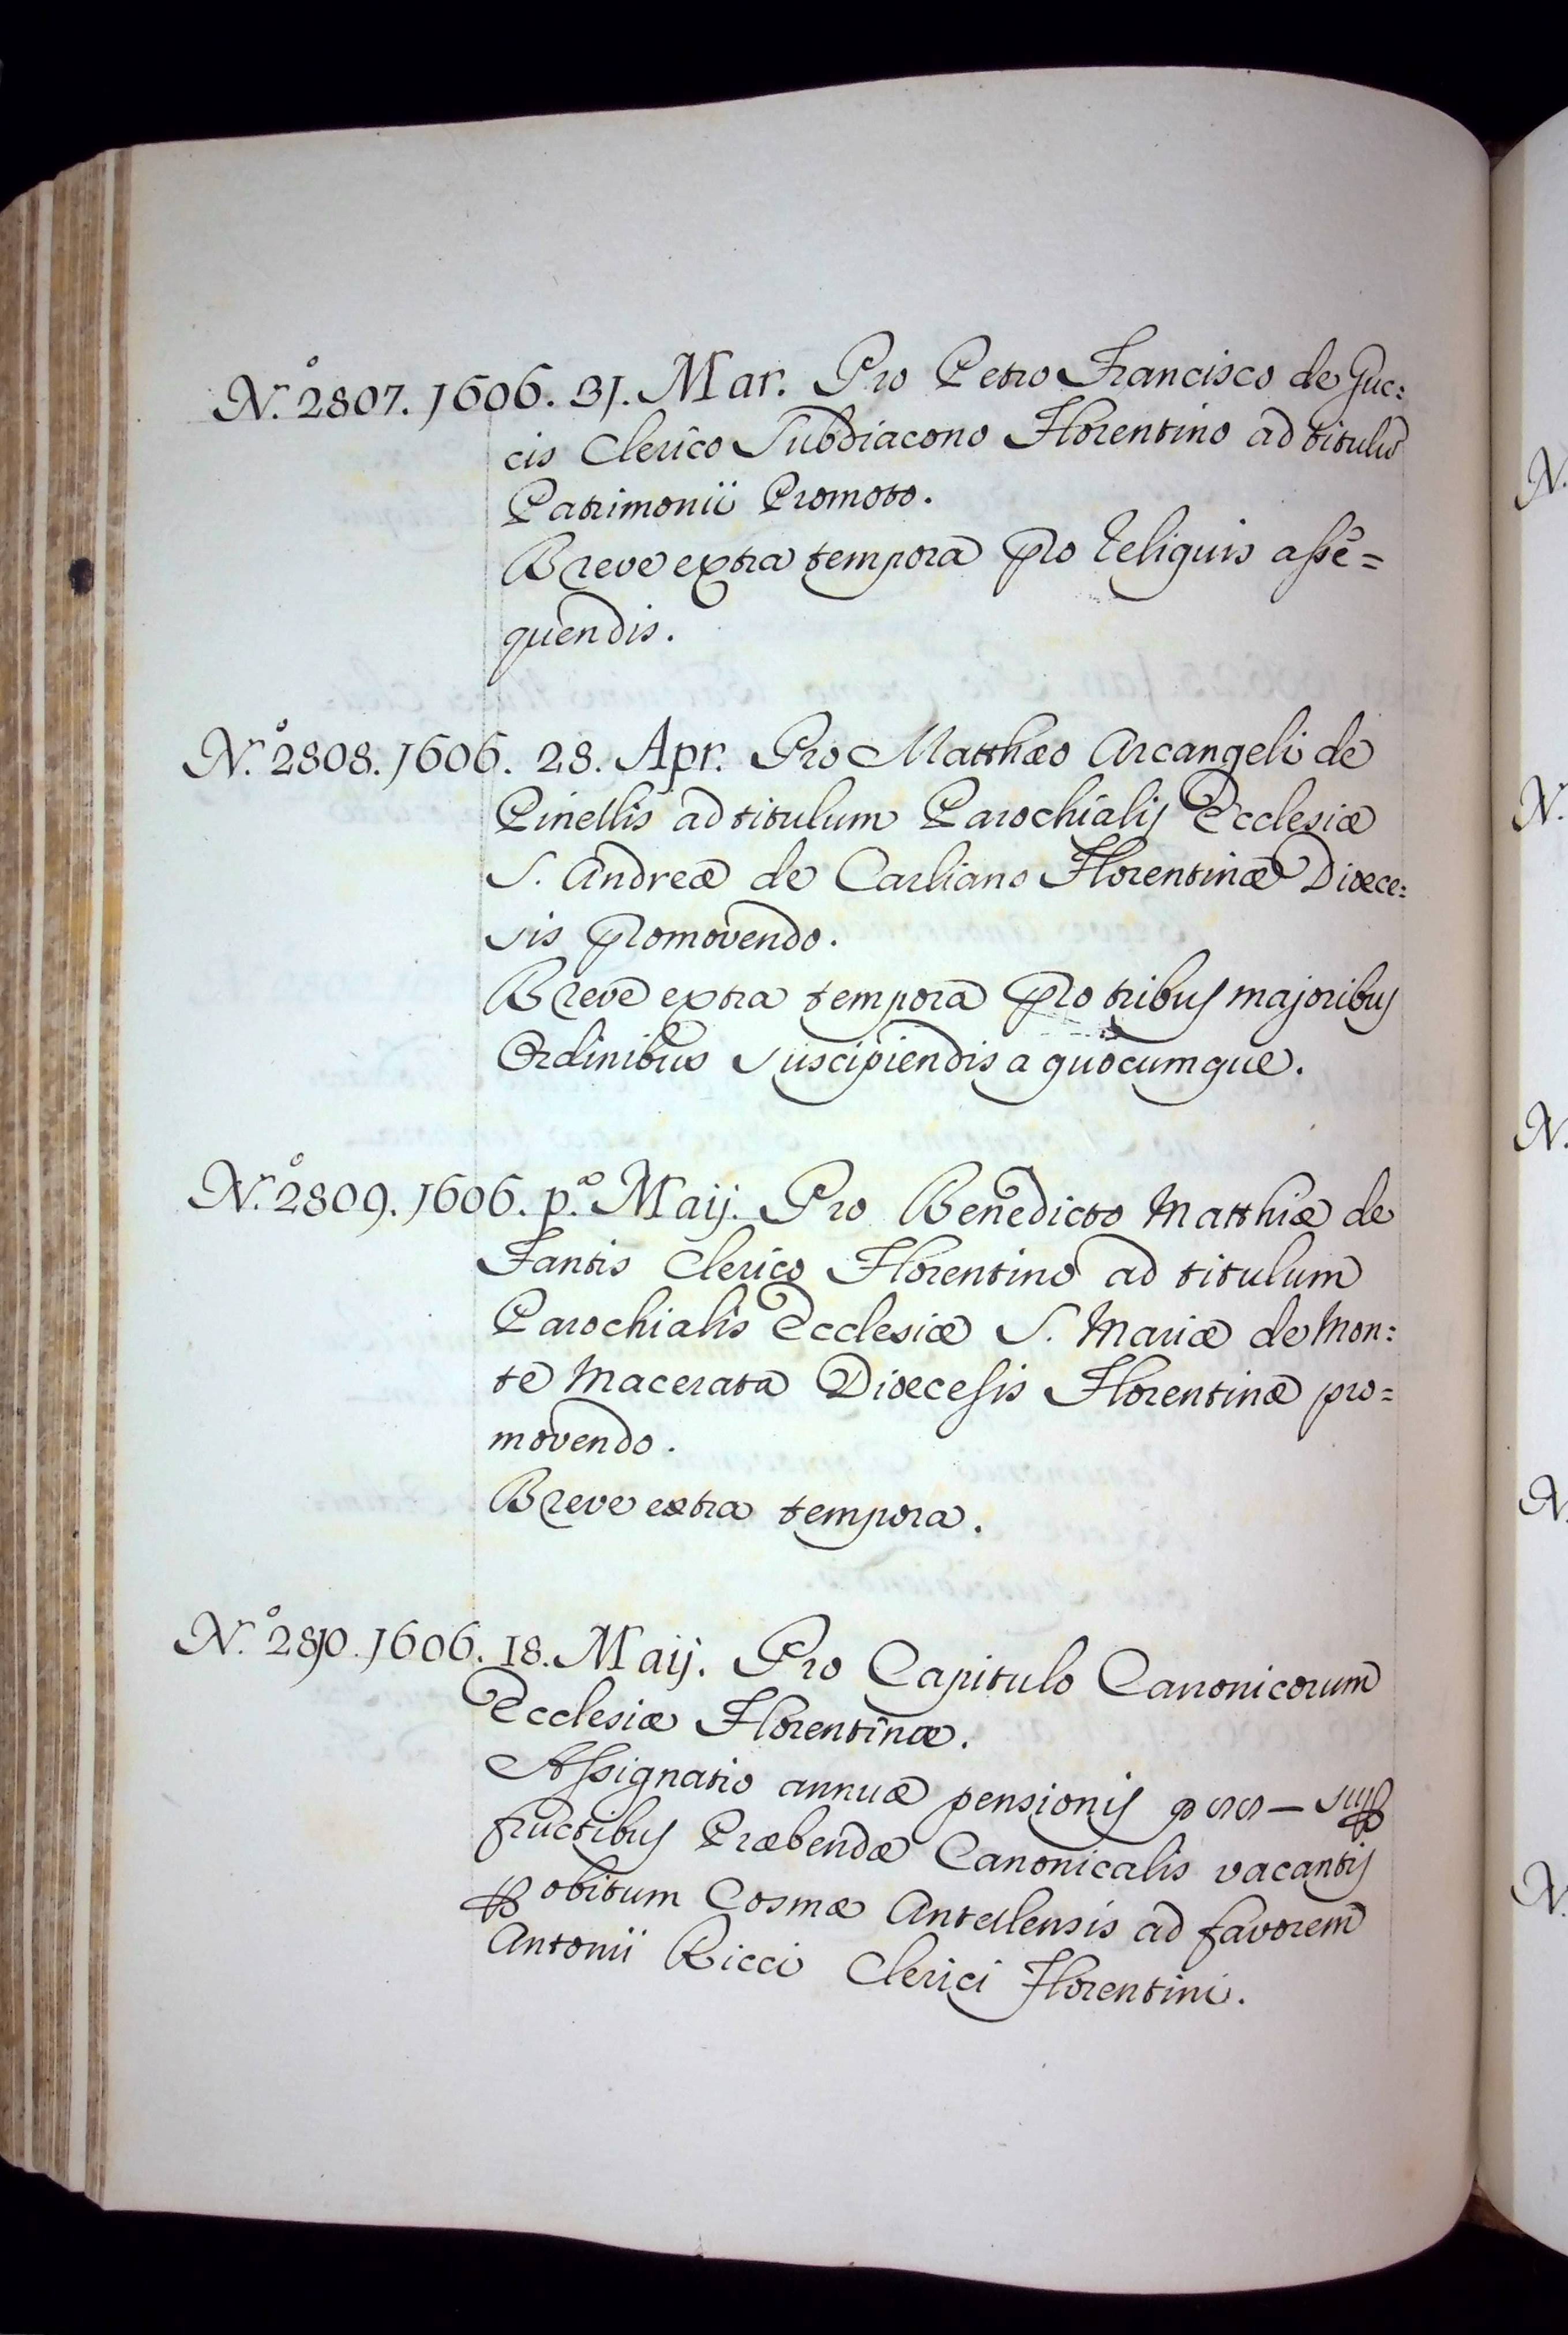 N.º 2807. 1606. 31. Mar. Pro Petro Francisco de Guc:
cis Clerico Subdiacono Florentino ad titulũ
Patrimonii Promoto.
Breve extra tempora pro reliquis asse=
quendis.
N.º 2808. 1606. 28. Apr. Pro Matthæo Arcangeli de
Pinellis ad titulum Parochialis Ecclesiæ
S. Andreæ de Carliano Florentinæ Diœce:
sis promovendo.
Breve extra tempora pro tribus majoribus
Ordinibus suscipiendis a quocumque.
N.º 2809. 1606. p.º Maij. Pro Benedicto Matthiæ de
Fantis Clerico Florentino ad titulum
Parochialis Ecclesiæ S. Mariæ de Mon:
te Macerata Diœcesis Florentinæ pro=
movendo.
Breve extra tempora.
N.º 2810. 1606. 18. Maij. Pro Capitulo Canonicorum
Ecclesiæ Florentinæ.
Assignatio annuæ pensionis
fructibus Præbendæ Canonicalis vacantis
ꝑ obitum Cosmæ Antellensis ad favorem
Antonii Ricci Clerici Florentini.
N.
N.
N.
N.
N.